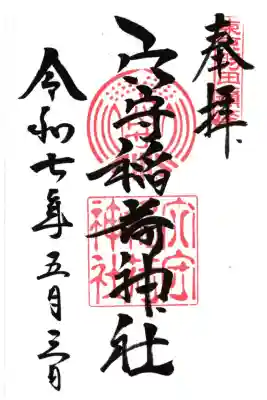 奉拝
穴守稲荷神社
令和七年五月三日
穴守
稲荷
神社